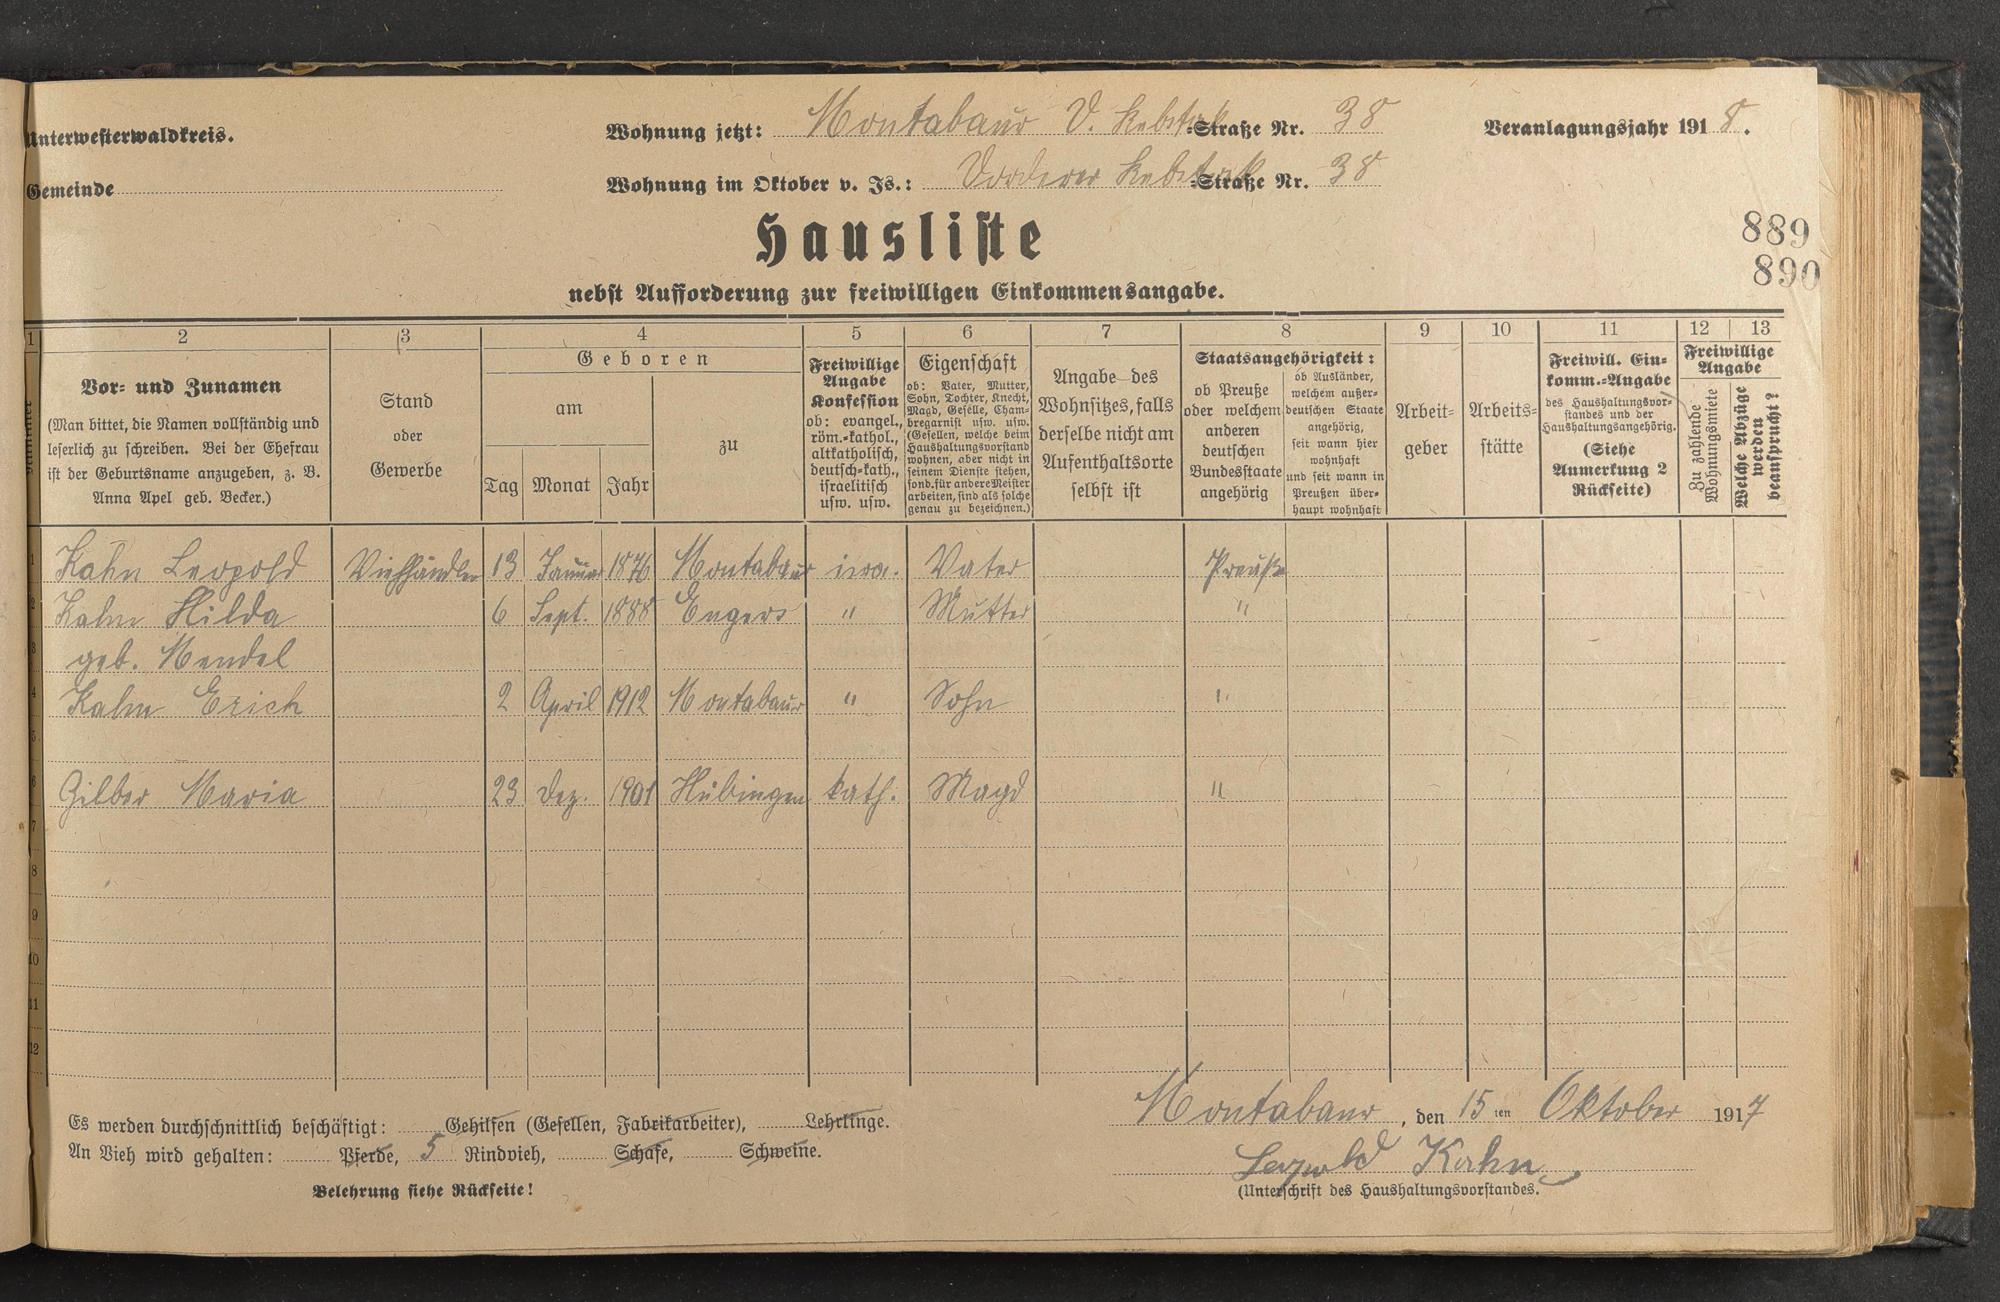 Unterwesterwaldkreis.
Wohnung jetzt: Montabaur V. Rebstock-Straße Nr. 38
Veranlagungsjahr 1918.
Gemeinde
Wohnung im Oktober v. Js.: Vorderer Rebstock-Straße Nr. 38
Hausliste
889
890
nebst Aufforderung zur freiwilligen Einkommensangabe.
1 2 3 4 5 6 7 8 9 10 11 12 13
Nummer
Vor- und Zunamen
(Man bittet, die Namen vollständig und
leserlich zu schreiben. Bei der Ehefrau
ist der Geburtsname anzugeben, z. B.
Anna Apel geb. Becker.)
Stand
oder
Gewerbe
Geboren
am
Tag Monat Jahr
zu
Freiwillige
Angabe
Konfession
ob: evangel.,
röm.-kathol.,
altkatholisch,
deutsch-kath.,
israelitisch
usw. usw.
Eigenschaft
ob: Vater, Mutter,
Sohn, Tochter, Knecht,
Magd, Geselle, Cham-
bregarnist usw. usw.
(Gesellen, welche beim
Haushaltungsvorstand
wohnen, aber nicht in
seinem Dienste stehen,
sond. für andere Meister
arbeiten, sind als solche
genau zu bezeichnen.)
Angabe des
Wohnsitzes, falls
derselbe nicht am
Aufenthaltsorte
selbst ist
Staatsangehörigkeit:
ob Preuße
oder welchem
anderen
deutschen
Bundesstaate
angehörig
ob Ausländer,
welchem außer-
deutschen Staate
angehörig,
seit wann hier
wohnhaft
und seit wann in
Preußen über-
haupt wohnhaft
Arbeit-
geber
Arbeits-
stätte
Freiwill. Ein-
komm.-Angabe
des Haushaltungsvor-
standes und der
Haushaltungsangehörig.
(Siehe
Anmerkung 2
Rückseite)
Freiwillige
Angabe
Zu zahlende
Wohnungsmiete
Welche Abzüge
werden
beansprucht?
1 Kahn Leopold Viehhändler 13 Januar 1876 Montabaur isra. Vater Preuße
2 Kahn Hilda 6 Sept. 1888 Engers " Mutter "
3 geb. Mendel
4 Kahn Erich 2 April 1912 Montabaur " Sohn "
5
6 Gilber Maria 23 Dez. 1901 Hübingen kath. Magd "
7
8
9
10
11
12
Es werden durchschnittlich beschäftigt: Gehilfen (Gesellen, Fabrikarbeiter), Lehrlinge.
Montabaur, den 15ten Oktober 1917
An Vieh wird gehalten: Pferde, 5 Rindvieh, Schafe, Schweine.
Leopold Kahn
Belehrung siehe Rückseite!
(Unterschrift des Haushaltungsvorstandes.